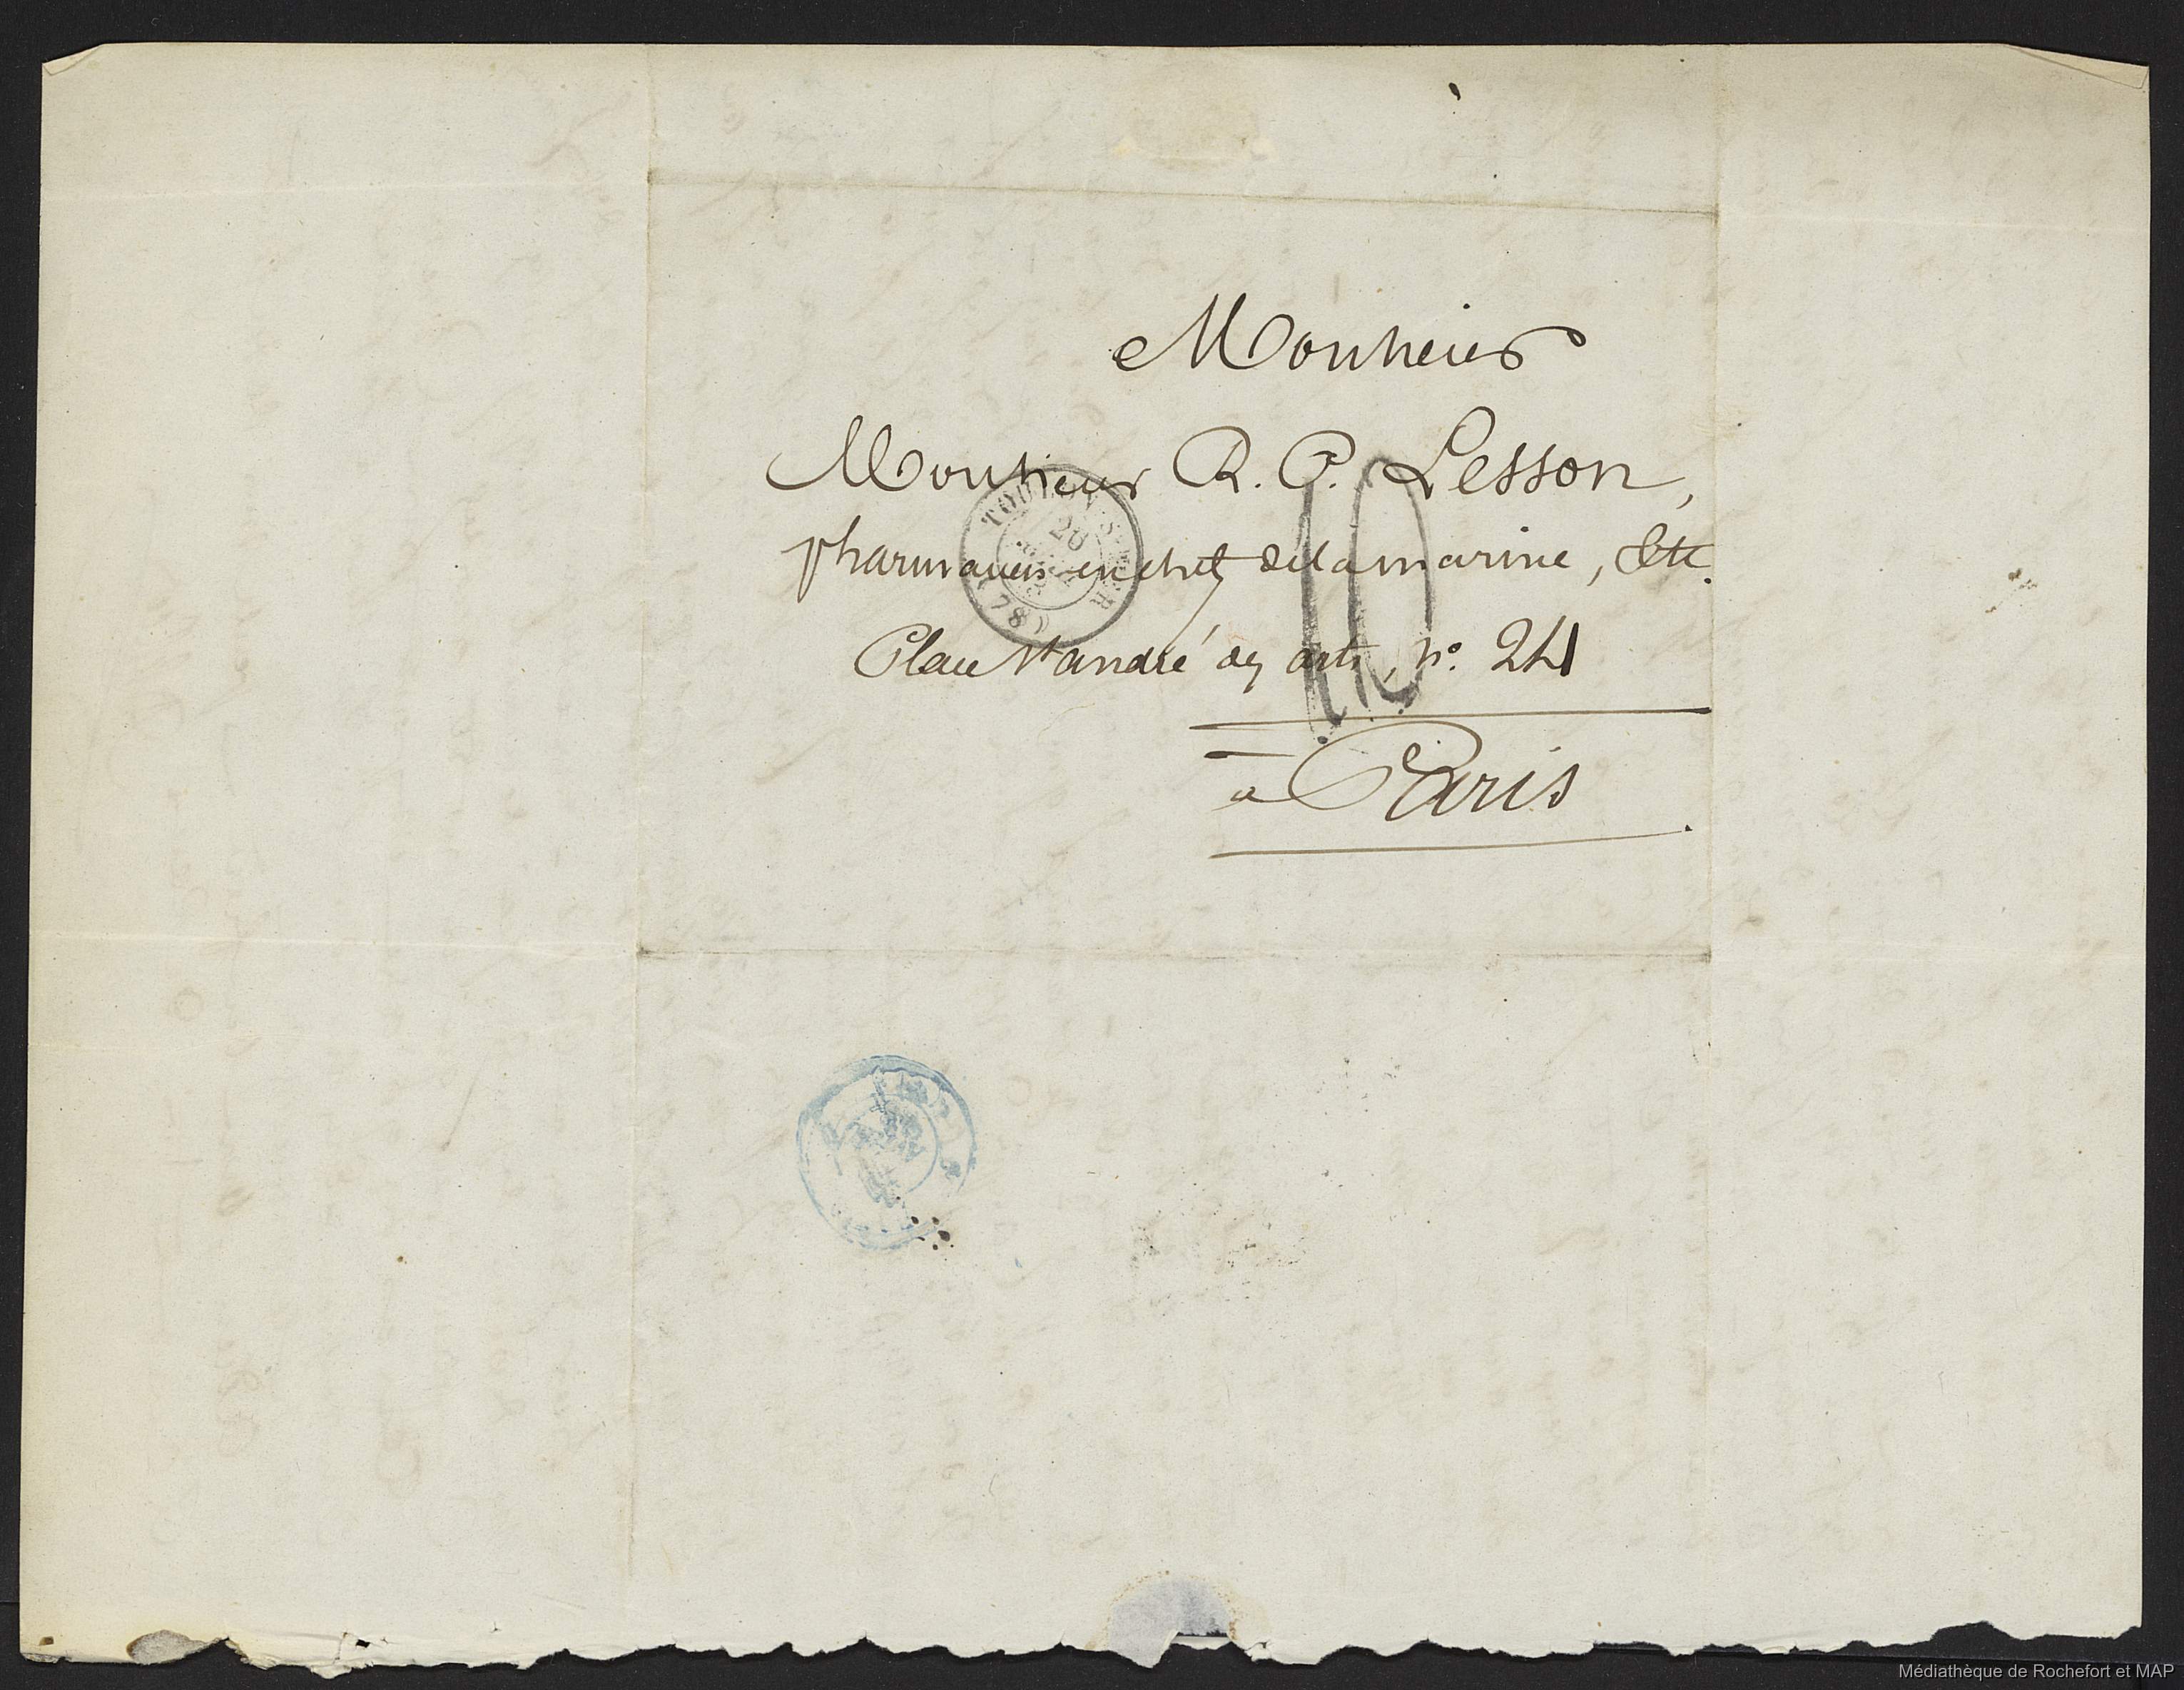 Monsieur
Monsieur R. P. Lesson,
pharmacien en chef de la marine, Etc.
Place St andré des arts, no. 24
10
à Paris
TOULON-S-MER
20
(78)
Médiathèque de Rochefort et MAP